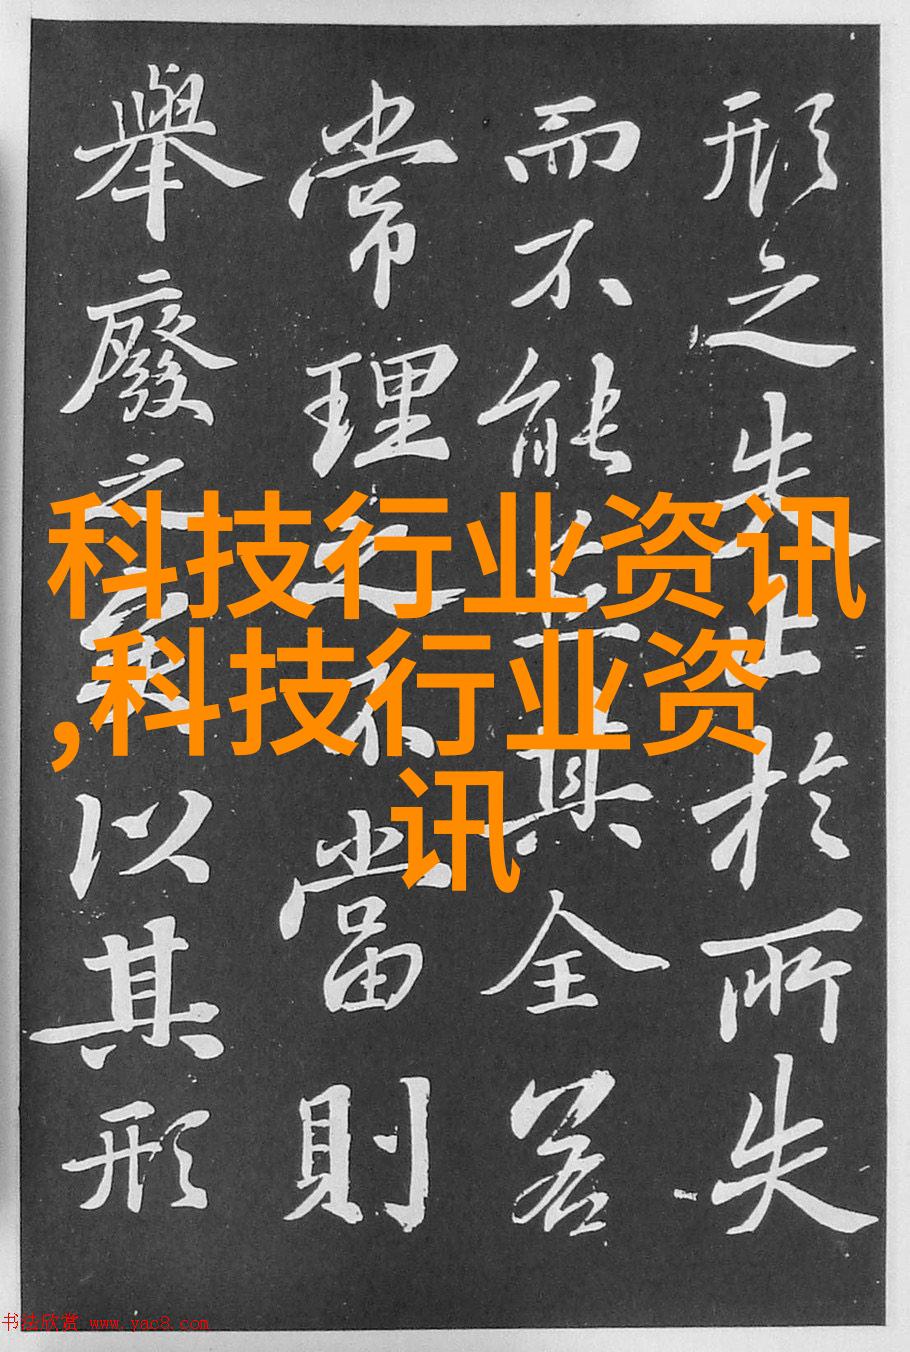 形之失止於所失
而不能其全若
常理之不當則
舉廢之矣以其形
科技行业资讯
,科技行业资
讯
书法欣赏 www.yac8.com